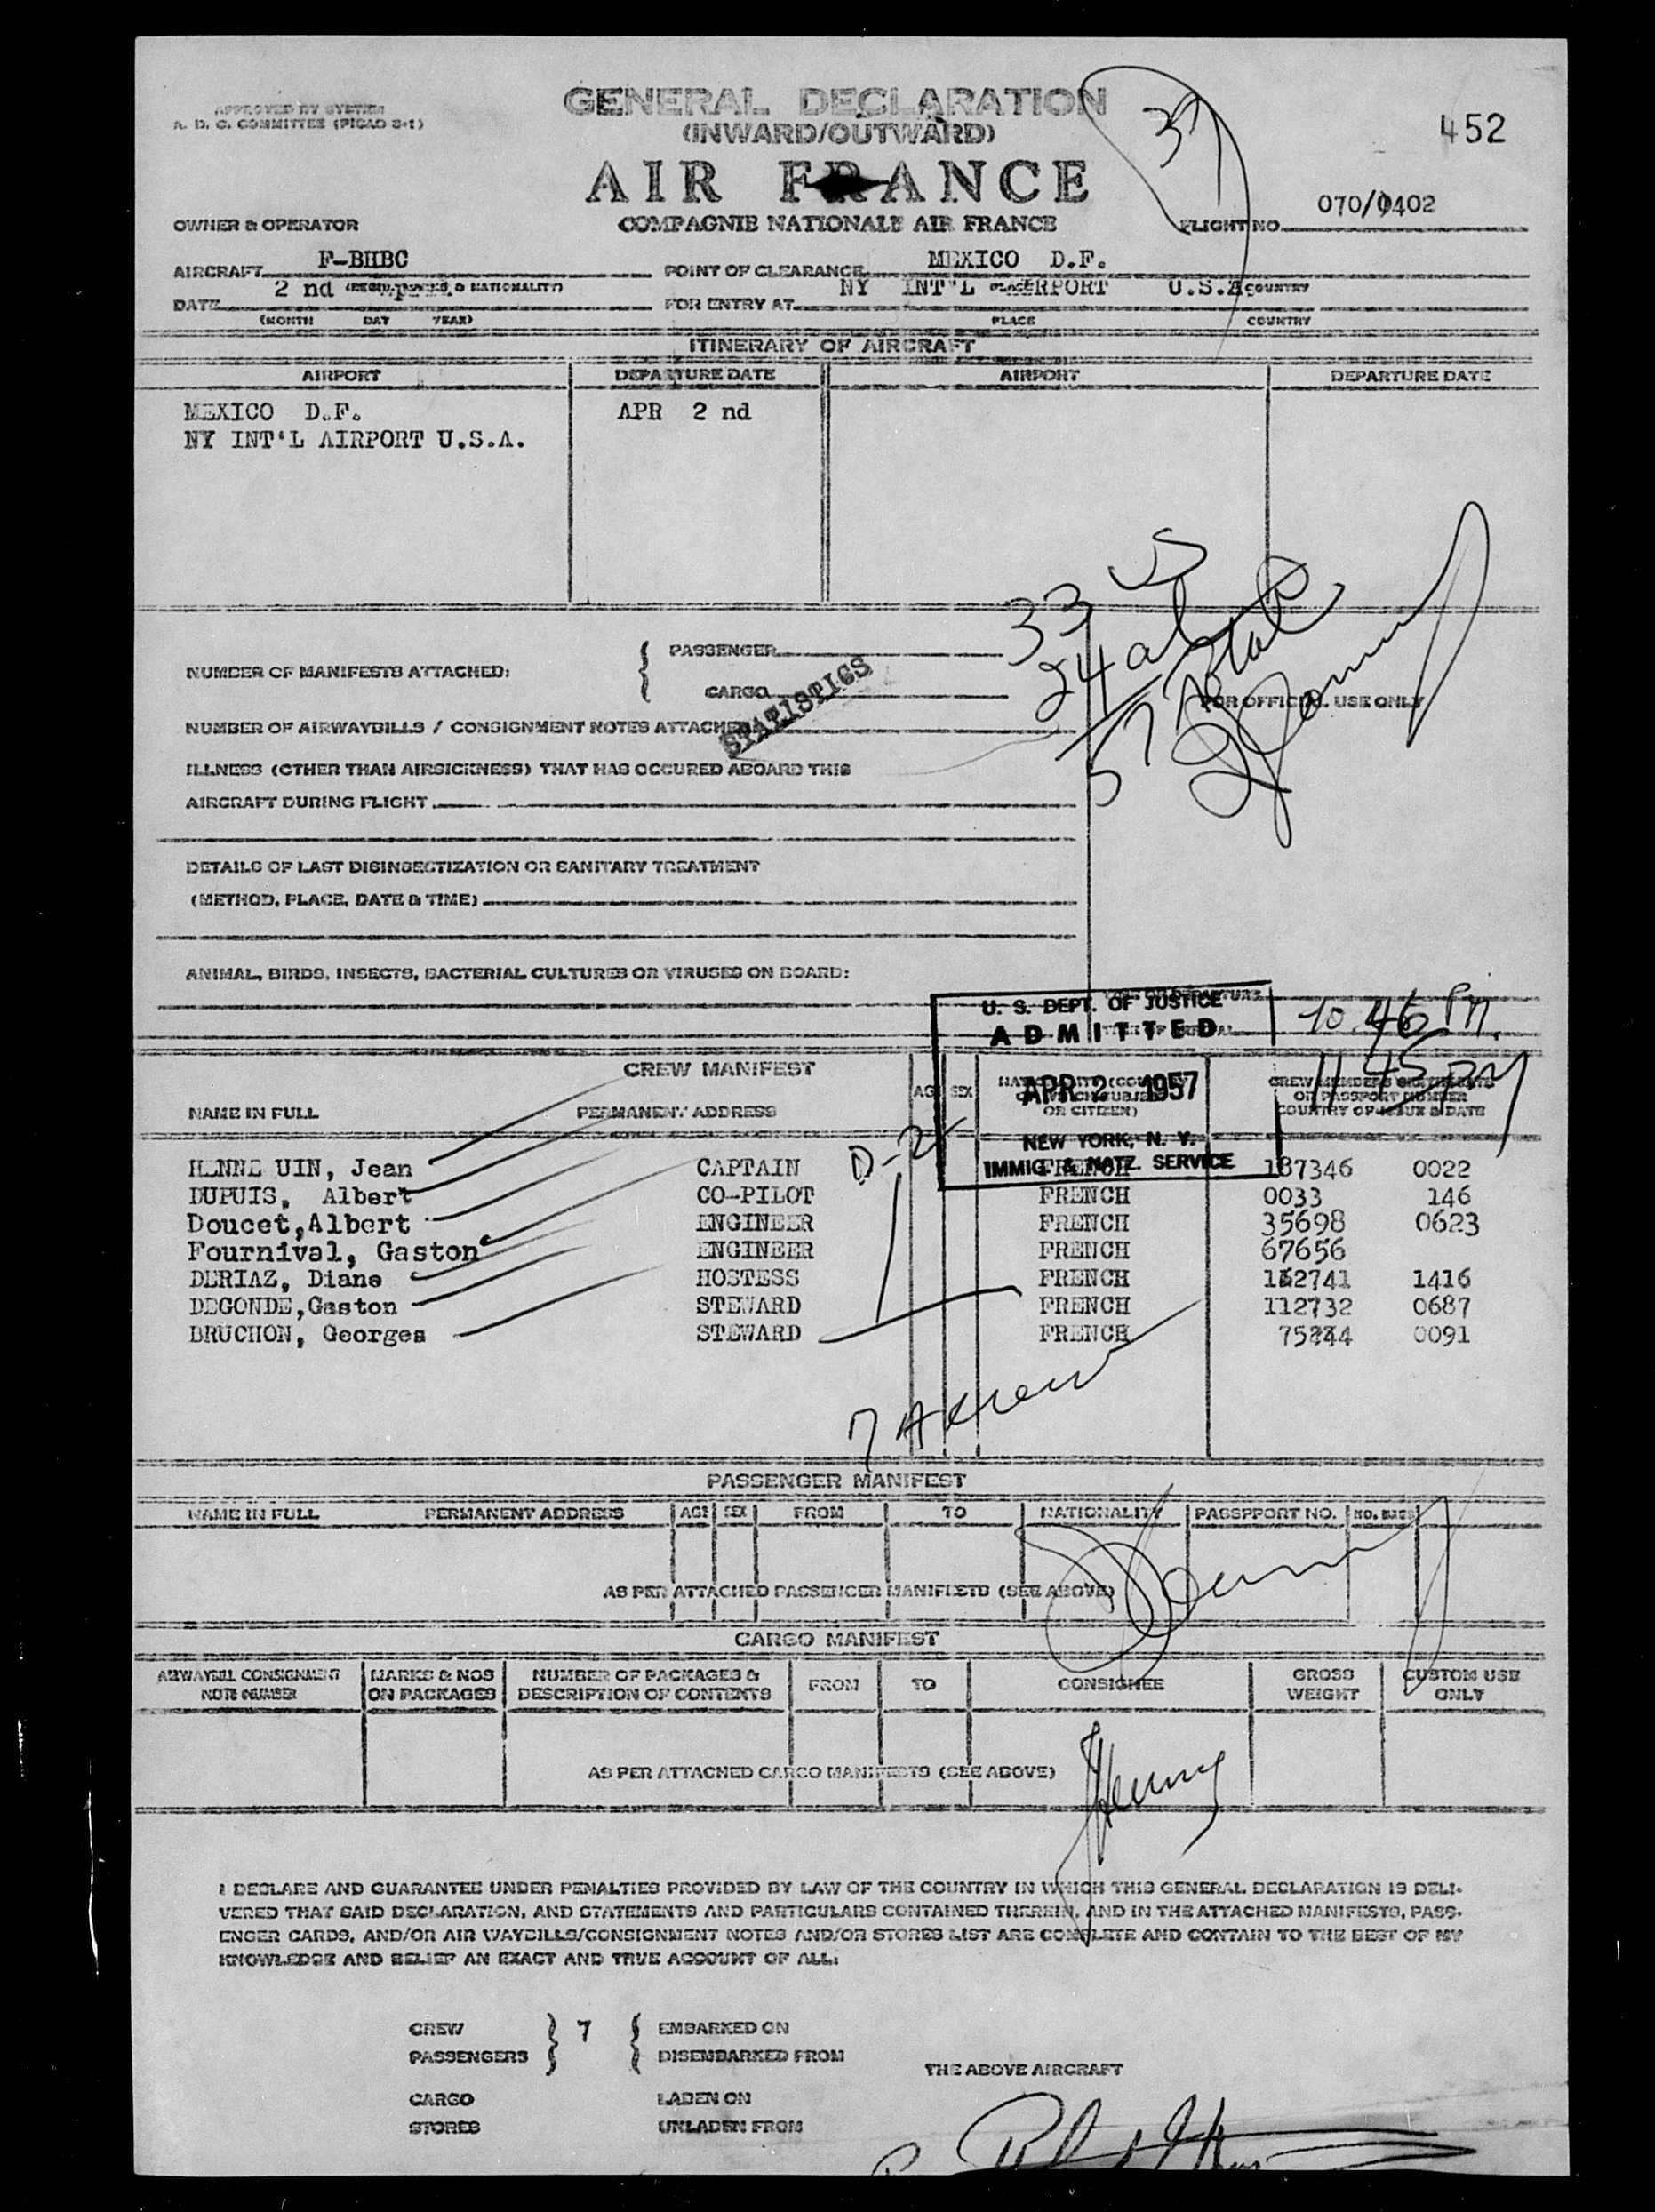 APPROVED BY SYSTEM
A. D. C. COMMITTEE (PICAO S-1)
GENERAL DECLARATION
(INWARD/OUTWARD)
AIR FRANCE
COMPAGNIE NATIONALE AIR FRANCE
37
452
OWNER & OPERATOR
FLIGHT NO. 070/0402
AIRCRAFT F-BHBC
POINT OF CLEARANCE MEXICO D.F.
DATE 2 nd
FOR ENTRY AT NY INT'L AIRPORT U.S.A
(MONTH DAY YEAR)
PLACE COUNTRY
ITINERARY OF AIRCRAFT
AIRPORT DEPARTURE DATE AIRPORT DEPARTURE DATE
MEXICO D.F. APR 2 nd
NY INT'L AIRPORT U.S.A.
33 US
24 al
57 Total
NUMBER OF MANIFESTS ATTACHED:
PASSENGER
CARGO
STATISTICS
FOR OFFICIAL USE ONLY
NUMBER OF AIRWAYBILLS / CONSIGNMENT NOTES ATTACHED
ILLNESS (OTHER THAN AIRSICKNESS) THAT HAS OCCURED ABOARD THIS
AIRCRAFT DURING FLIGHT
DETAILS OF LAST DISINSECTIZATION OR SANITARY TREATMENT
(METHOD, PLACE, DATE & TIME)
ANIMAL, BIRDS, INSECTS, BACTERIAL CULTURES OR VIRUSES ON BOARD:
U. S. DEPT. OF JUSTICE
ADMITTED
APR 2 1957
NEW YORK, N. Y.
IMMIG. & NATZ. SERVICE
10.46 PM.
11 45 PM
CREW MANIFEST
NAME IN FULL PERMANENT ADDRESS AGE SEX
OR CITIZEN)
CREW MEMBERS
OR PASSPORT NUMBER
COUNTRY OF ISSUE & DATE
D-2
HENNE UIN, Jean CAPTAIN FRENCH 187346 0022
DUPUIS, Albert CO-PILOT FRENCH 0033 146
Doucet,Albert ENGINEER FRENCH 35698 0623
Fournival, Gaston ENGINEER FRENCH 67656
DERIAZ, Diane HOSTESS FRENCH 162741 1416
DEGONDE,Gaston STEWARD FRENCH 112732 0687
BRUCHON, Georges STEWARD FRENCH 75244 0091
7 A Krew
PASSENGER MANIFEST
NAME IN FULL PERMANENT ADDRESS AGE SEX FROM TO NATIONALITY PASSPPORT NO.
AS PER ATTACHED PASSENGER MANIFESTS (SEE ABOVE)
CARGO MANIFEST
AIRWAYBILL CONSIGNMENT NOTE NUMBER
MARKS & NOS ON PACKAGES
NUMBER OF PACKAGES & DESCRIPTION OF CONTENTS
FROM TO CONSIGNEE
GROSS WEIGHT
CUSTOM USE ONLY
AS PER ATTACHED CARGO MANIFESTS (SEE ABOVE)
I DECLARE AND GUARANTEE UNDER PENALTIES PROVIDED BY LAW OF THE COUNTRY IN WHICH THIS GENERAL DECLARATION IS DELI-
VERED THAT SAID DECLARATION, AND STATEMENTS AND PARTICULARS CONTAINED THEREIN, AND IN THE ATTACHED MANIFESTS, PASS-
ENGER CARDS, AND/OR AIR WAYBILLS/CONSIGNMENT NOTES AND/OR STORES LIST ARE COMPLETE AND CONTAIN TO THE BEST OF MY
KNOWLEDGE AND BELIEF AN EXACT AND TRUE ACCOUNT OF ALL:
CREW 7 EMBARKED ON
PASSENGERS DISEMBARKED FROM
THE ABOVE AIRCRAFT
CARGO LADEN ON
STORES UNLADEN FROM